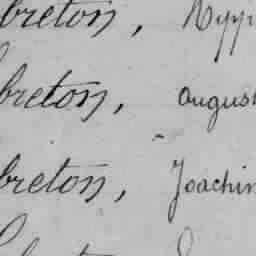 breton, Hypp
breton, august
breton, Joachim